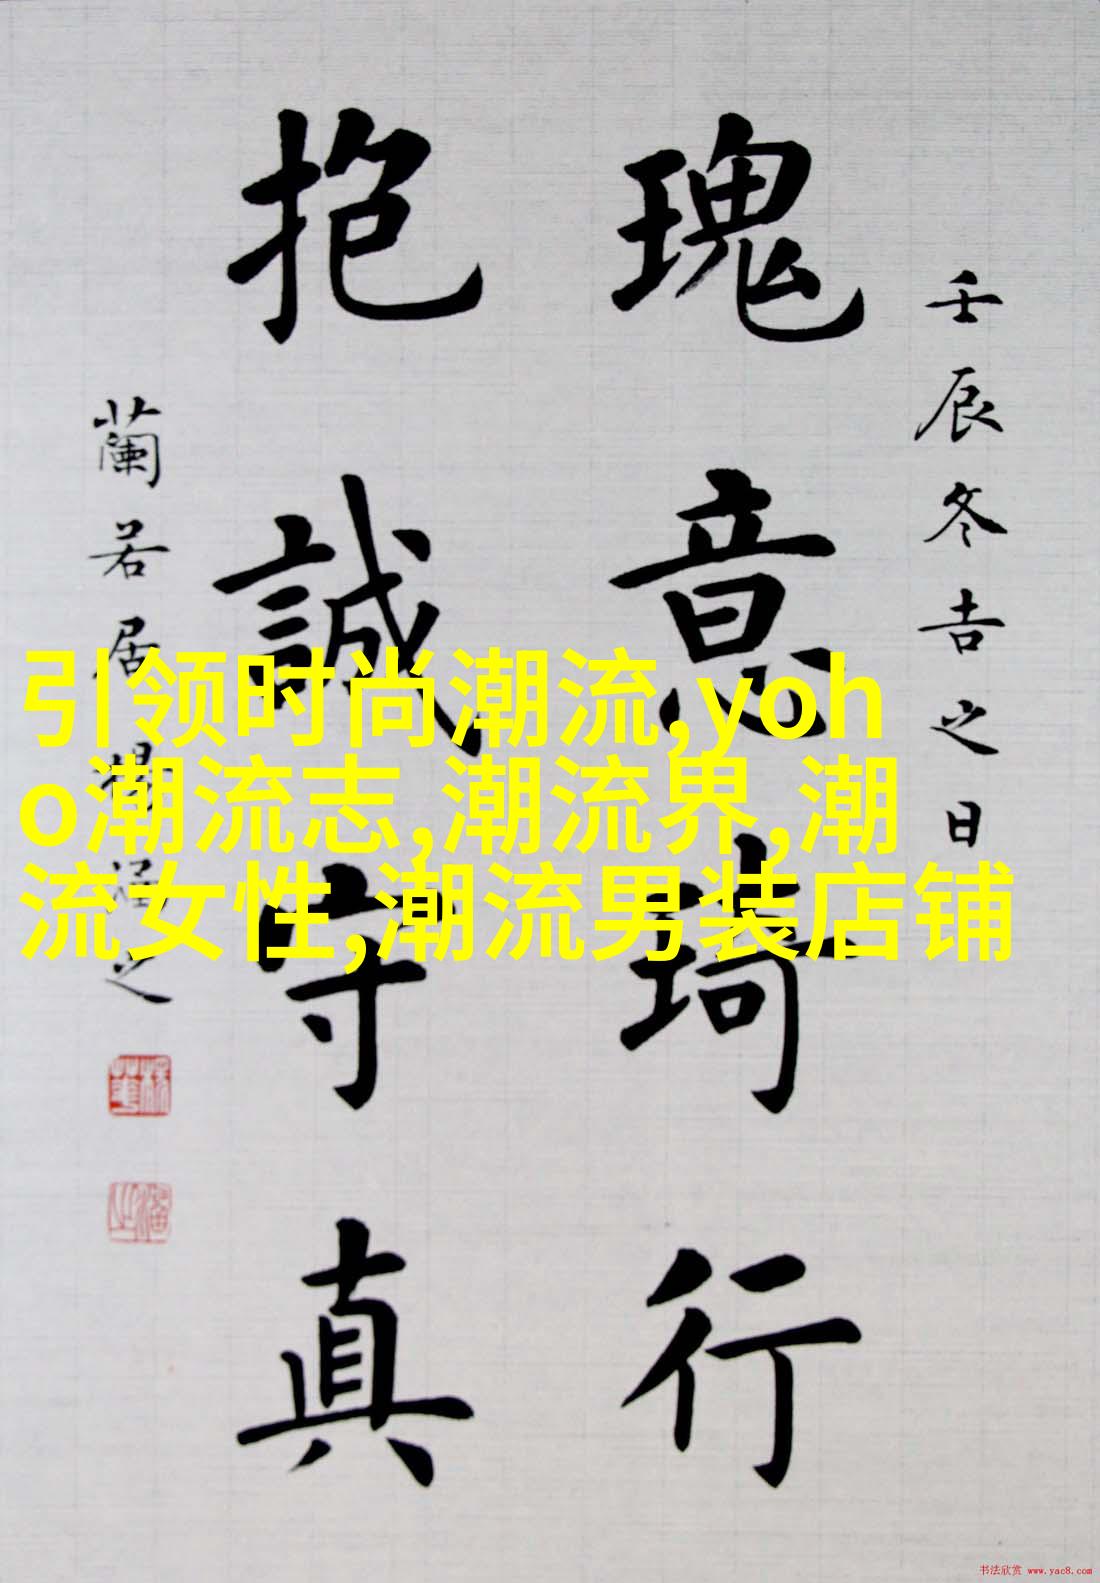 壬辰冬吉之日
瑰意琦行
抱誠守真
蘭若居楊涵之
引领时尚潮流,yoh
o潮流志,潮流界,潮
流女性,潮流男装店铺
书法欣赏 www.yac8.com